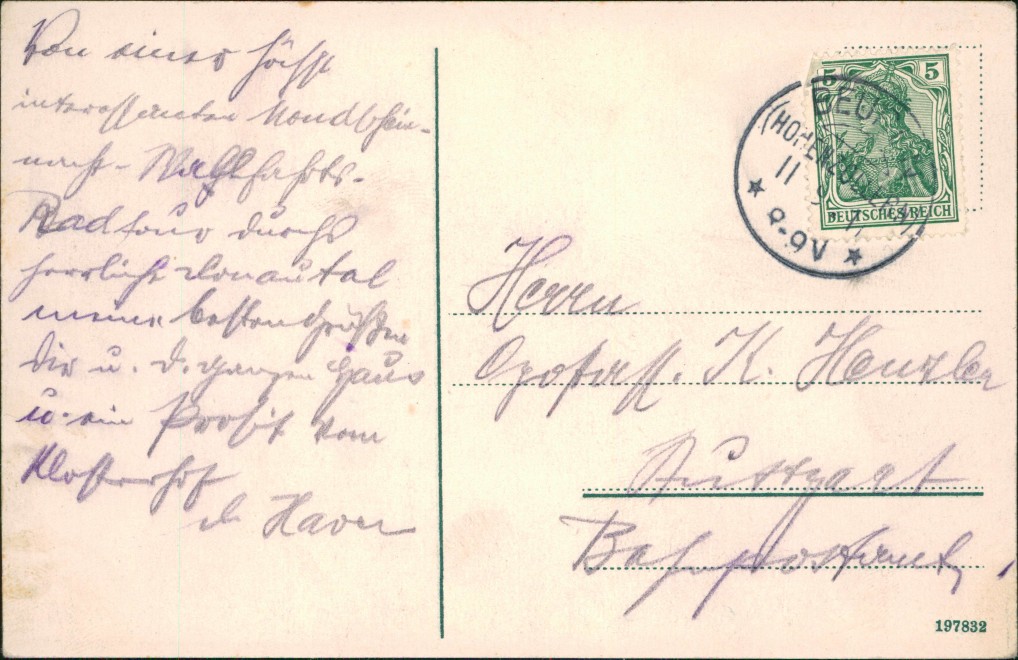 Von einer höchst
interessanten Mondschein-
nacht-Wallfahrts-
Radtour durchs
herrliche Donautal
meine besten Grüßen
Dir u. d. ganzen Haus
u. ein Prosit vom
Klosterhof
Xaver
5 5
DEUTSCHES REICH
BEU
(HOHENZOLLERN)
11
8-9V
Herrn
K. Henzler
Stuttgart
Bahnpostamt
197832